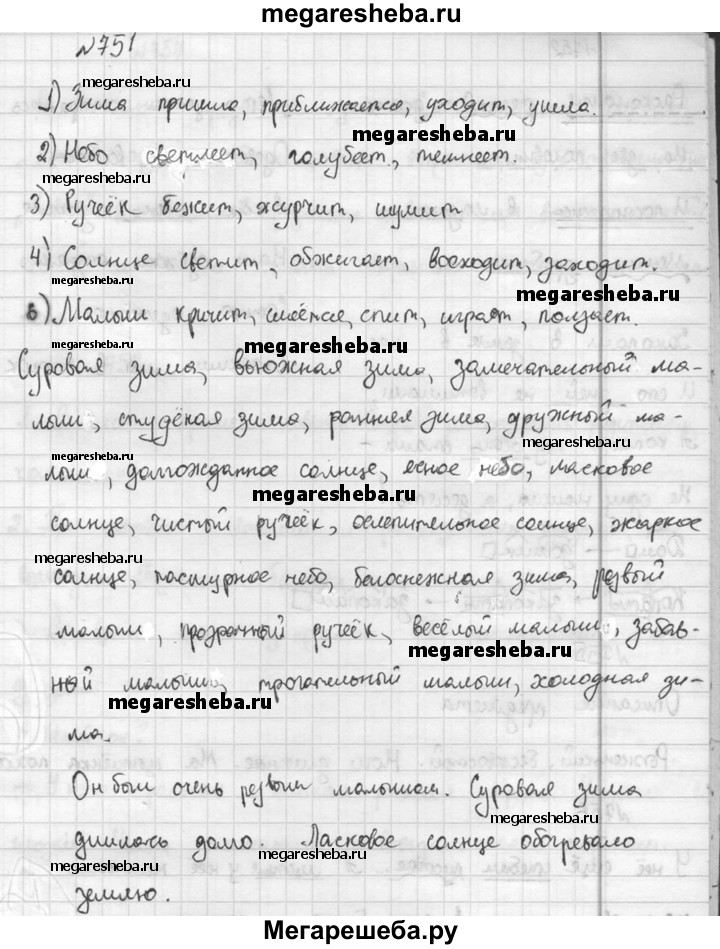 megaresheba.ru
№751
megaresheba.ru
1) Зима пришла, приближается, уходит, ушла.
megaresheba.ru
2) Небо светлеет, голубеет, темнеет.
megaresheba.ru
3) Ручеёк бежит, журчит, шумит
4) Солнце светит, обжигает, восходит, заходит.
megaresheba.ru
megaresheba.ru
6) Малыш кричит, смеётся, спит, играет, ползает.
megaresheba.ru
Суровая зима, вьюжная зима, замечательный ма-
лыш, студёная зима, ранняя зима, дружный ма-
megaresheba.ru
megaresheba.ru
лыш, долгожданное солнце, ясное небо, ласковое
megaresheba.ru
солнце, чистый ручеёк, ослепительное солнце, жаркое
megaresheba.ru
megaresheba.ru
солнце, пасмурное небо, белоснежная зима, резвый
megaresheba.ru
малыш, прозрачный ручеёк, весёлый малыш, забав-
megaresheba.ru
megaresheba.ru
ный малыш, трогательный малыш, холодная зи-
megaresheba.ru
ма.
Он был очень резвым малышом. Суровая зима
megaresheba.ru
длилась долго. Ласковое солнце обогревало
megaresheba.ru
megaresheba.ru
землю.
Мегарешеба.ру